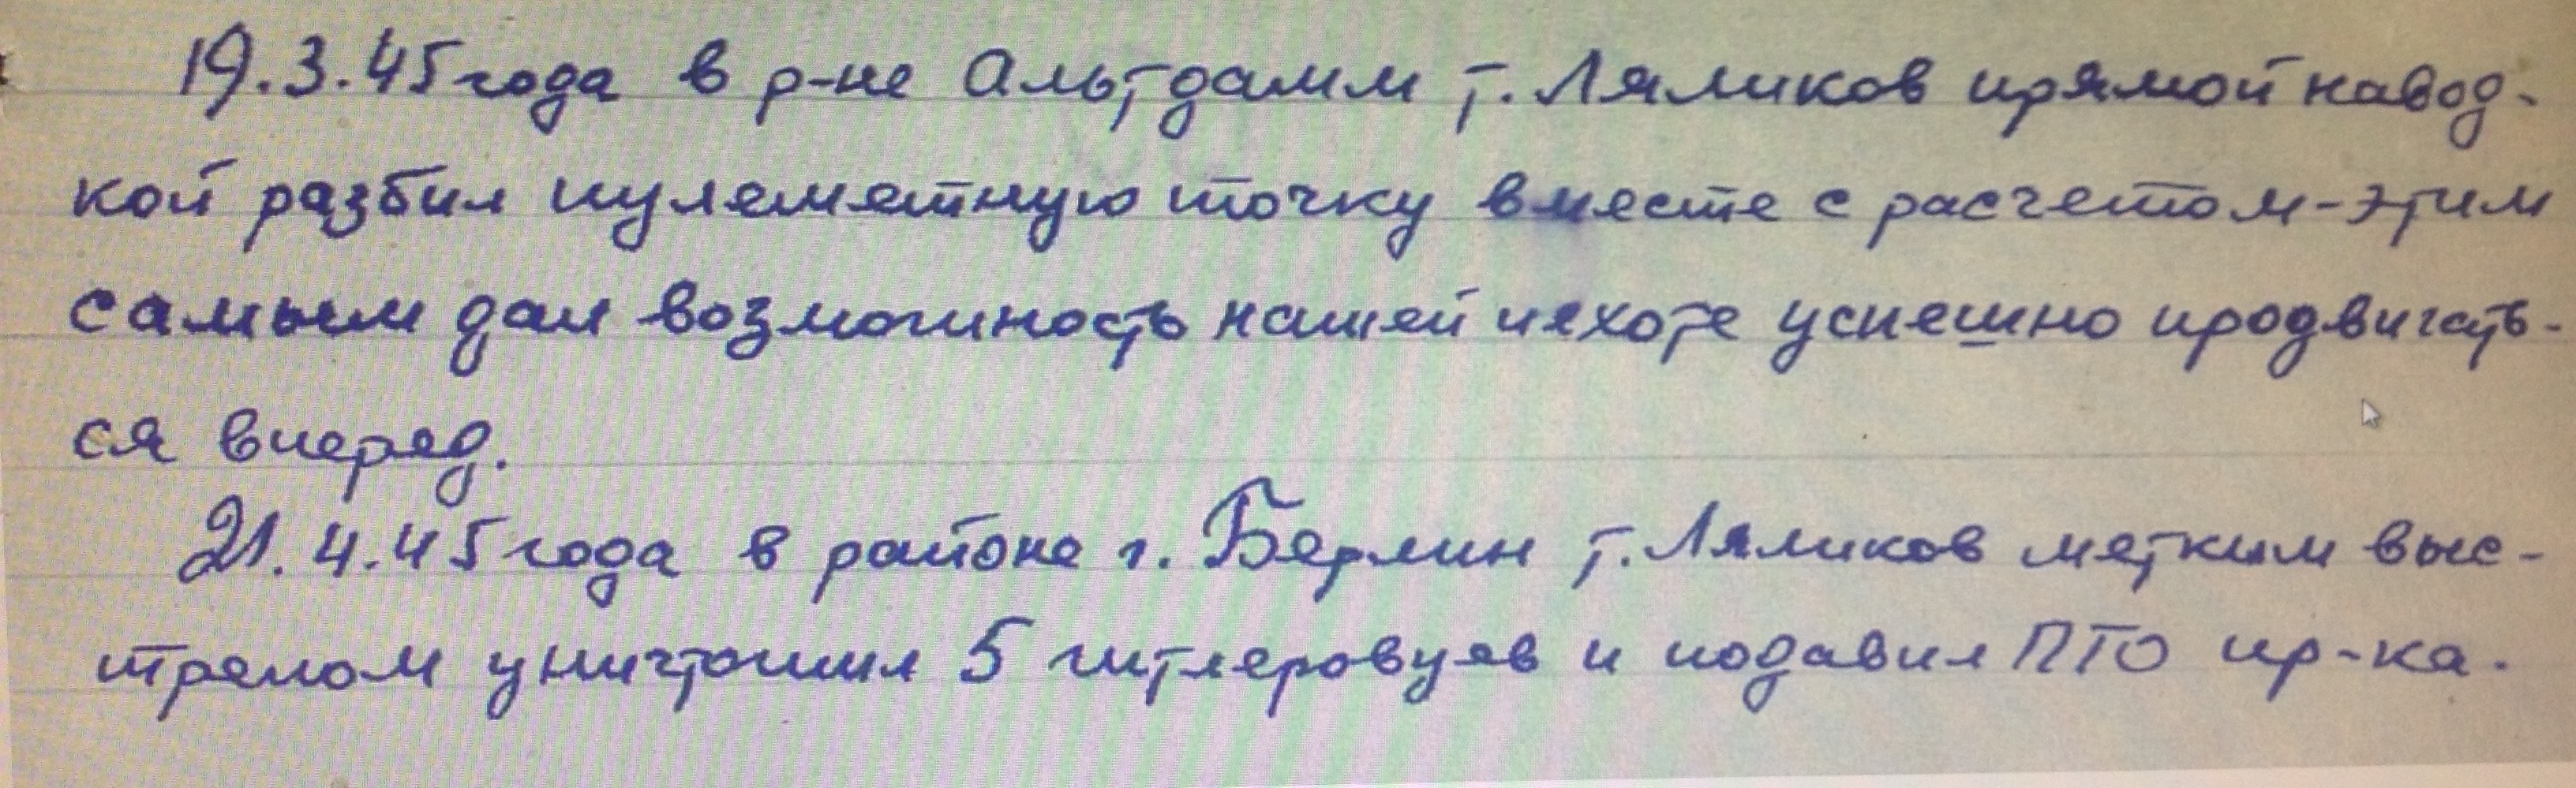 19.3.45 года в р-не Альтдамм т. Ляликов прямой навод-
кой разбил пулеметную точку вместе с расчетом-этим
самым дал возможность нашей пехоте успешно продвигать-
ся вперед.
21.4.45 года в районе г. Берлин т. Ляликов метким выс-
трелом уничтожил 5 гитлеровцев и подавил ПТО пр-ка.